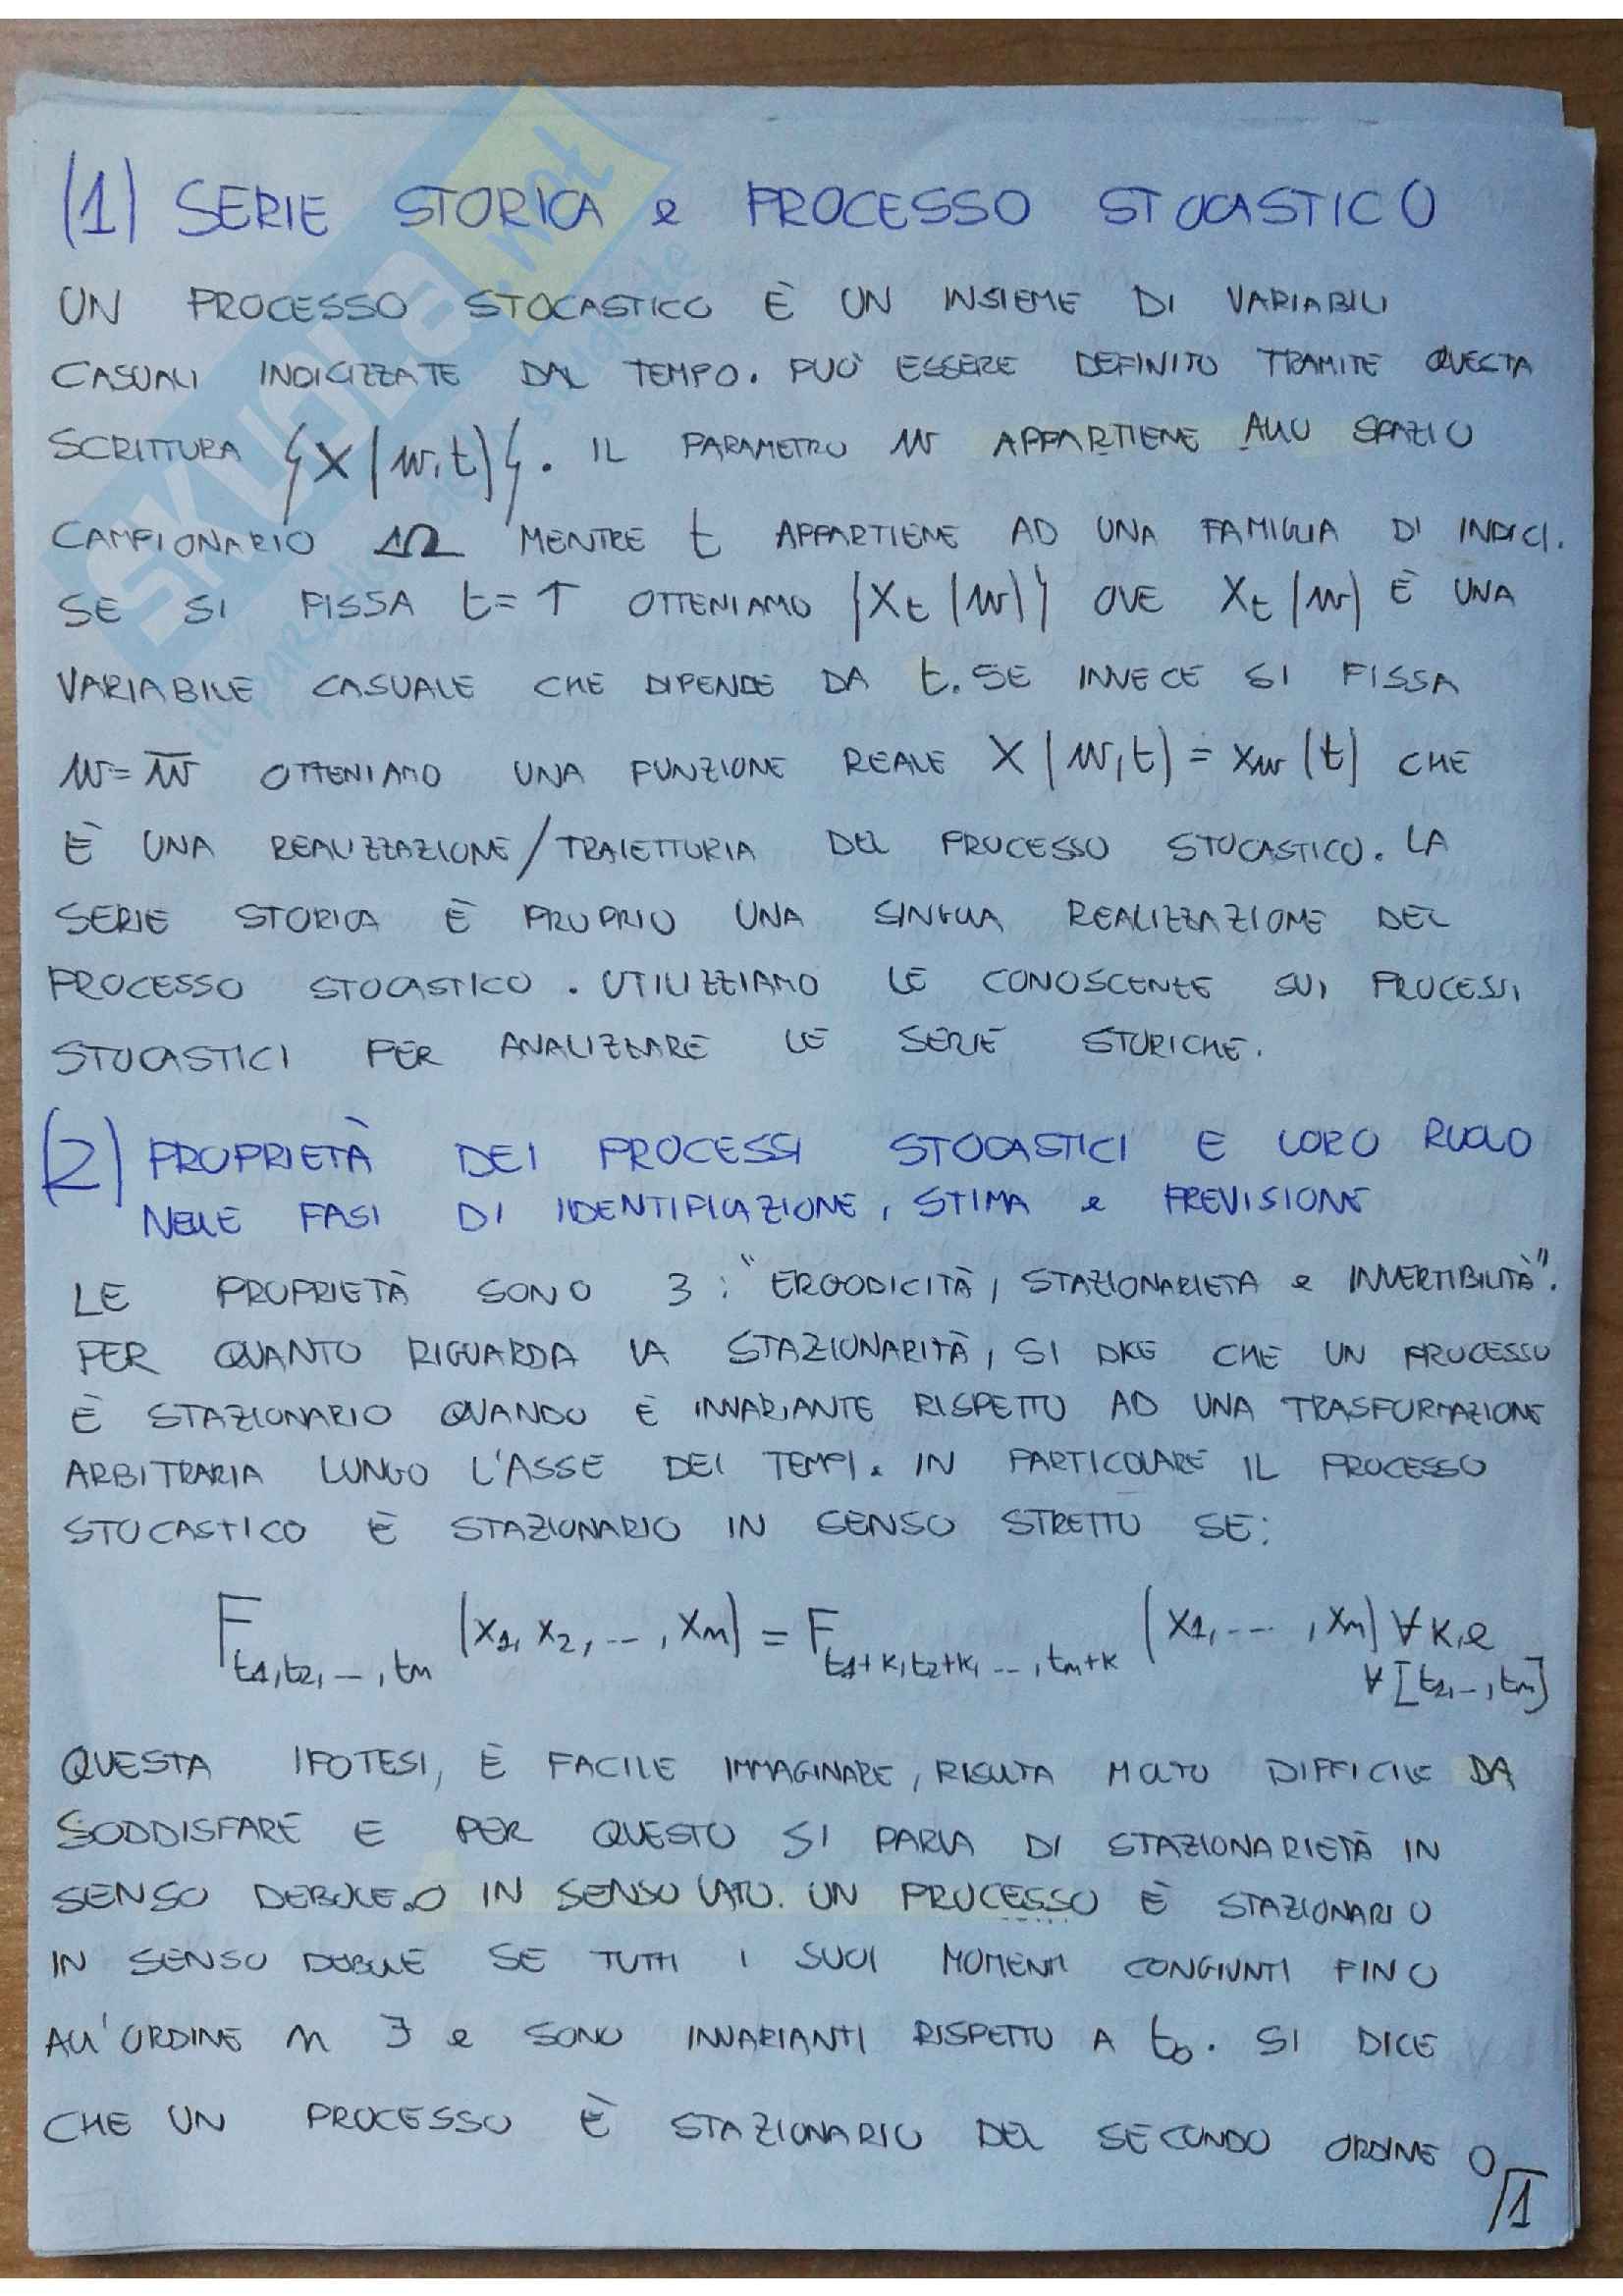 (1) SERIE STORICA e PROCESSO STOCASTICO
UN PROCESSO STOCASTICO È UN INSIEME DI VARIABILI
CASUALI INDICIZZATE DAL TEMPO. PUÒ ESSERE DEFINITO TRAMITE QUESTA
SCRITTURA {X(w,t)}. IL PARAMETRO w APPARTIENE ALLO SPAZIO
CAMPIONARIO Ω MENTRE t APPARTIENE AD UNA FAMIGLIA DI INDICI.
SE SI FISSA t=T OTTENIAMO {Xt(w)} OVE Xt(w) È UNA
VARIABILE CASUALE CHE DIPENDE DA t. SE INVECE SI FISSA
w=w̅ OTTENIAMO UNA FUNZIONE REALE X(w,t) = xw(t) CHE
È UNA REALIZZAZIONE/TRAIETTORIA DEL PROCESSO STOCASTICO. LA
SERIE STORICA È PROPRIO UNA SINGOLA REALIZZAZIONE DEL
PROCESSO STOCASTICO. UTILIZZIAMO LE CONOSCENZE SUI PROCESSI
STOCASTICI PER ANALIZZARE LE SERIE STORICHE.
(2) PROPRIETÀ DEI PROCESSI STOCASTICI E LORO RUOLO
NELLE FASI DI IDENTIFICAZIONE, STIMA e PREVISIONE
LE PROPRIETÀ SONO 3: "ERGODICITÀ, STAZIONARIETÀ e INVERTIBILITÀ".
PER QUANTO RIGUARDA LA STAZIONARITÀ, SI DICE CHE UN PROCESSO
È STAZIONARIO QUANDO È INVARIANTE RISPETTO AD UNA TRASFORMAZIONE
ARBITRARIA LUNGO L'ASSE DEI TEMPI. IN PARTICOLARE IL PROCESSO
STOCASTICO È STAZIONARIO IN SENSO STRETTO SE:
F t1,t2,...,tn (x1,x2,...,xn) = F t1+K,t2+K,...,tn+K (x1,...,xn) ∀K, e
∀[t1,...,tn]
QUESTA IPOTESI, È FACILE IMMAGINARE, RISULTA MOLTO DIFFICILE DA
SODDISFARE E PER QUESTO SI PARLA DI STAZIONARIETÀ IN
SENSO DEBOLE O IN SENSO LATO. UN PROCESSO È STAZIONARIO
IN SENSO DEBOLE SE TUTTI I SUOI MOMENTI CONGIUNTI FINO
ALL'ORDINE n ∃ e SONO INVARIANTI RISPETTO A t0. SI DICE
CHE UN PROCESSO È STAZIONARIO DEL SECONDO ORDINE O
1
SKUOLA.net